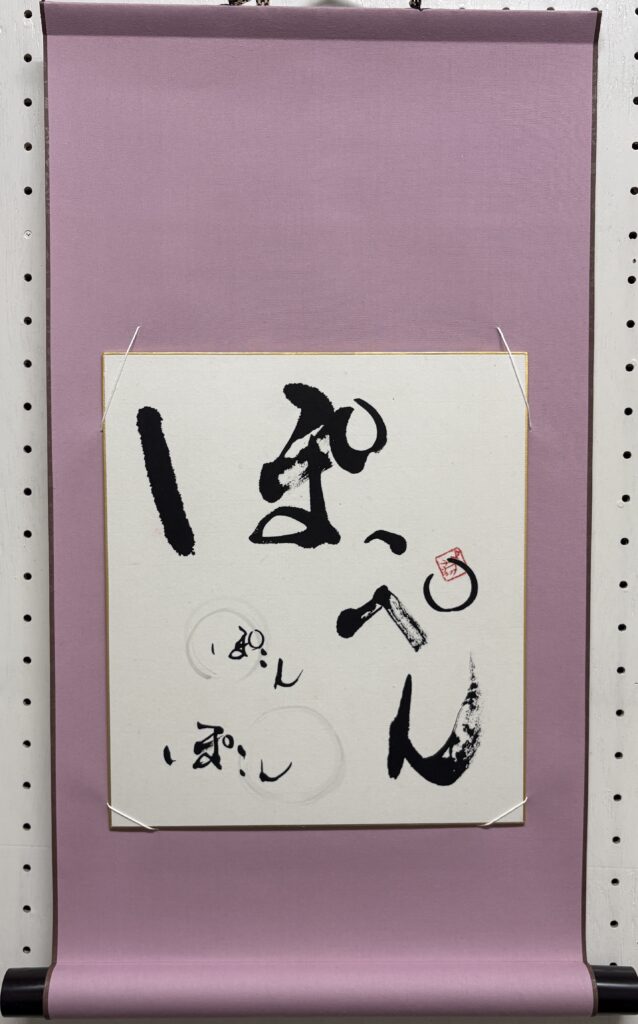 ぽっぺん
ぽこん
ぽこん